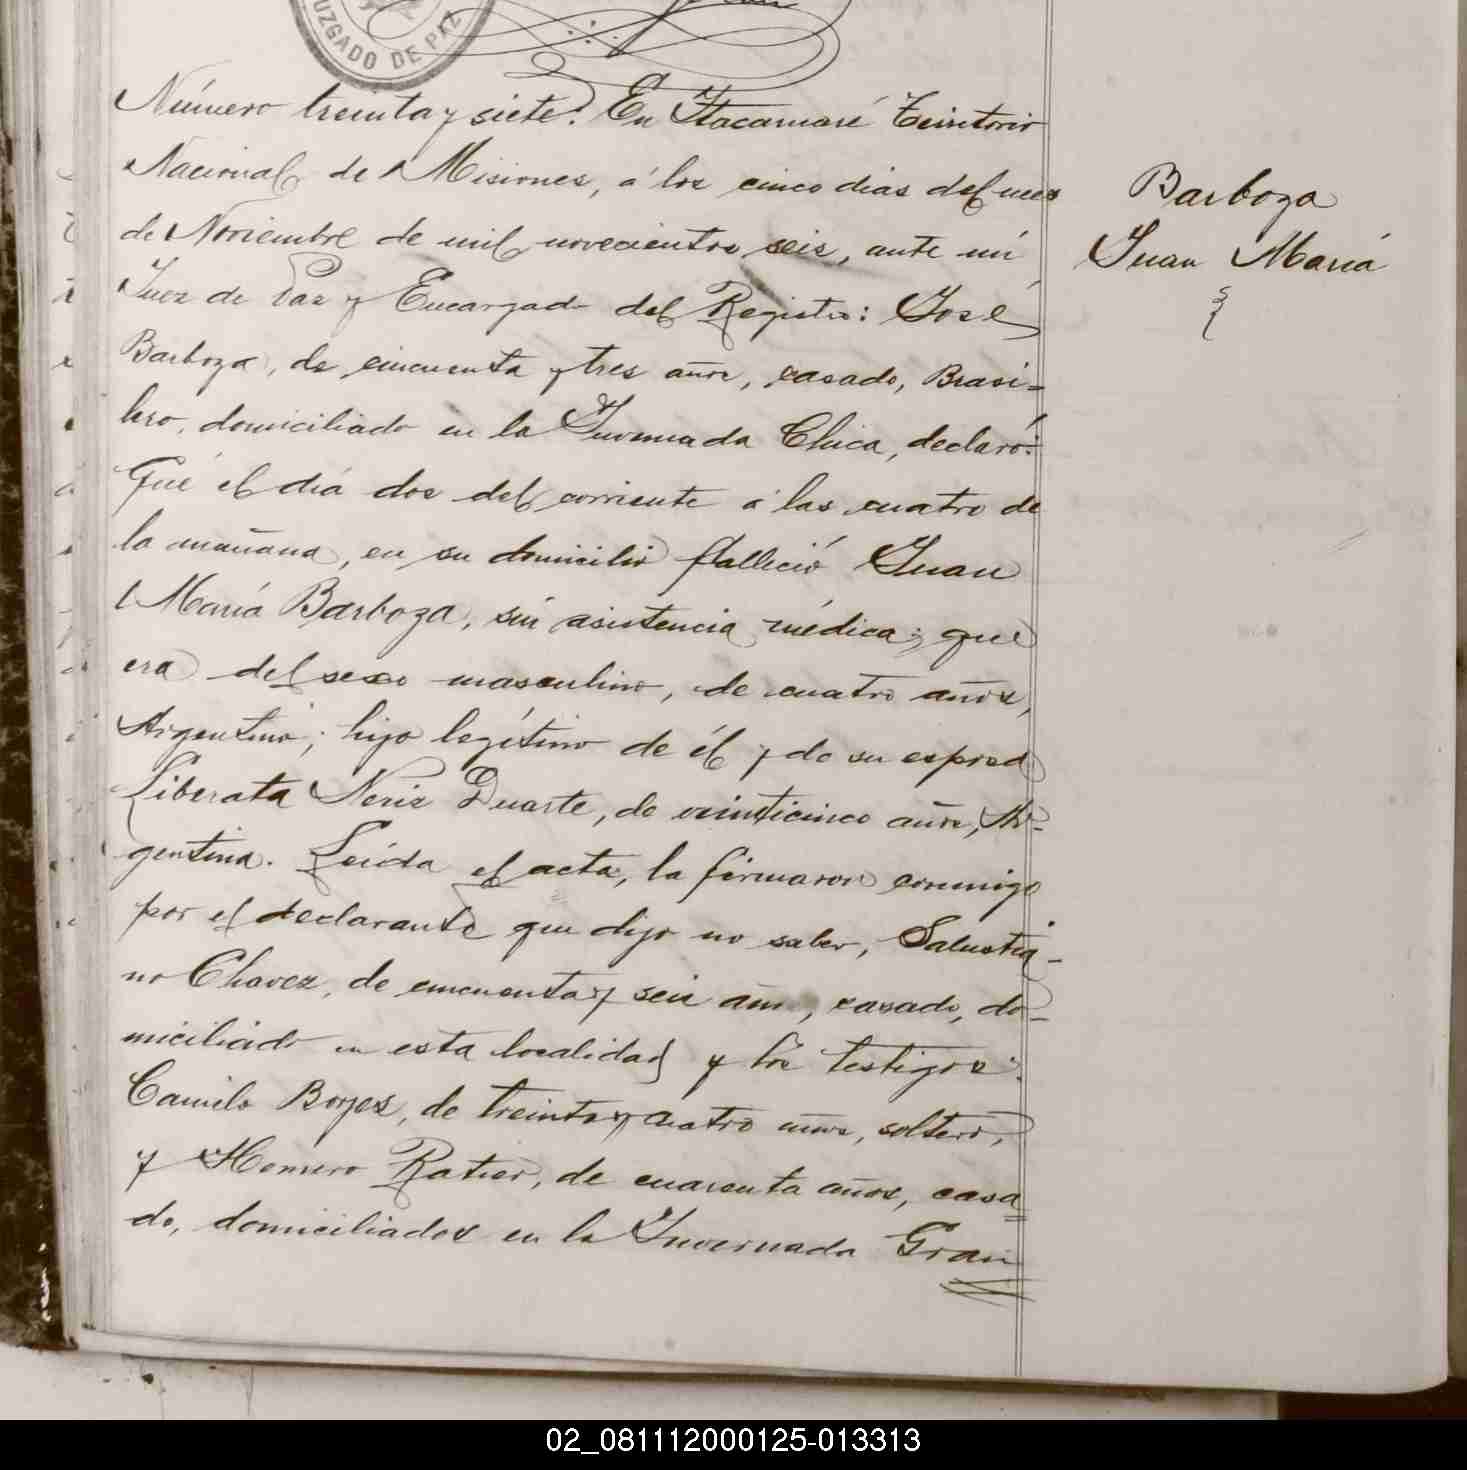 JUZGADO DE PAZ
Número treinta y siete. En Itacaruaré Territorio
Nacional de Misiones, á los cinco dias del mes
de Noviembre de mil novecientos seis, ante mí
Juez de Paz y Encargado del Registro: José
Barboza, de cincuenta y tres años, casado, Brasi=
lero, domiciliado en la Invernada Chica, declaró:
Qué el día dos del corriente á las cuatro de
la mañana, en su domicilio falleció Juan
María Barboza, sin asistencia médica; que
era del sexo masculino, de cuatro años,
Argentino; hijo legítimo de él y de su esposa
Liberata Neris Duarte, de veinticinco años, Ar-
gentina. Leída el acta, la firmaron conmigo
por el declarante que dijo no saber, Salustia-
no Chavez, de cincuenta y seis años, casado, do-
miciliado en esta localidad y los testigos:
Camilo Borges, de treinta y cuatro años, soltero,
y Homero Ratier, de cuarenta años, casa=
do, domiciliados en la Invernada Gran
Barboza
Juan María
02_081112000125-013313